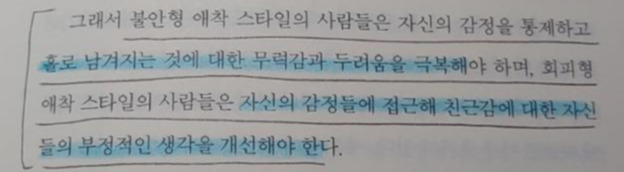 그래서 불안형 애착 스타일의 사람들은 자신의 감정을 통제하고
홀로 남겨지는 것에 대한 무력감과 두려움을 극복해야 하며, 회피형
애착 스타일의 사람들은 자신의 감정들에 접근해 친근감에 대한 자신
들의 부정적인 생각을 개선해야 한다.